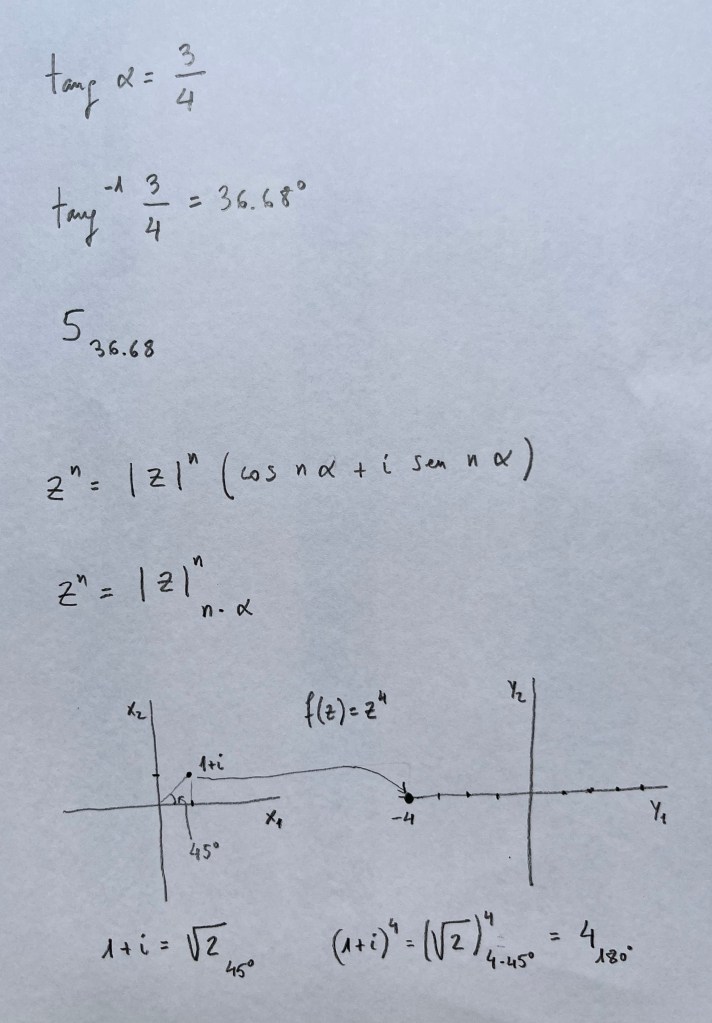 tang α = 3/4
tang⁻¹ 3/4 = 36.68°
5₃₆.₆₈
zⁿ = |z|ⁿ (cos n α + i sen n α)
zⁿ = |z|ⁿ n·α
x₂ f(z) = z⁴ Y₂
1+i
-4
x₁ Y₁
45°
1+i = √2 45° (1+i)⁴ = (√2)⁴ 4·45° = 4 180°